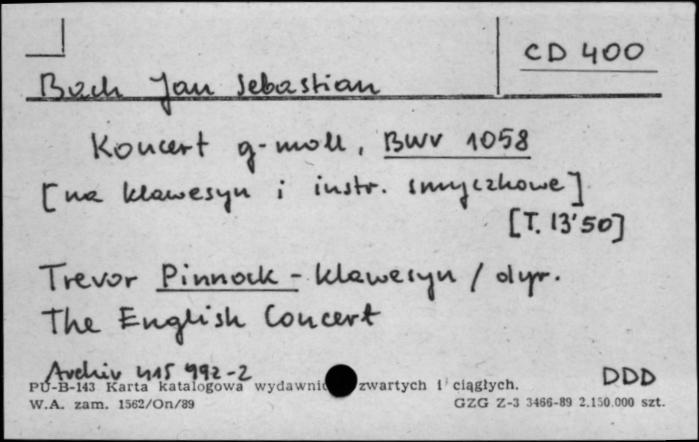 CD 400
Bach Jan Sebastian
Koncert g-moll, BWV 1058
[na klawesyn i instr. smyczkowe]
[T. 13'50]
Trevor Pinnock - klawesyn / dyr.
The English Concert
Archiv 415 992-2 DDD
PU-B-143 Karta katalogowa wydawnic zwartych i ciągłych.
W.A. zam. 1562/On/89 GZG Z-3 3466-89 2.150.000 szt.